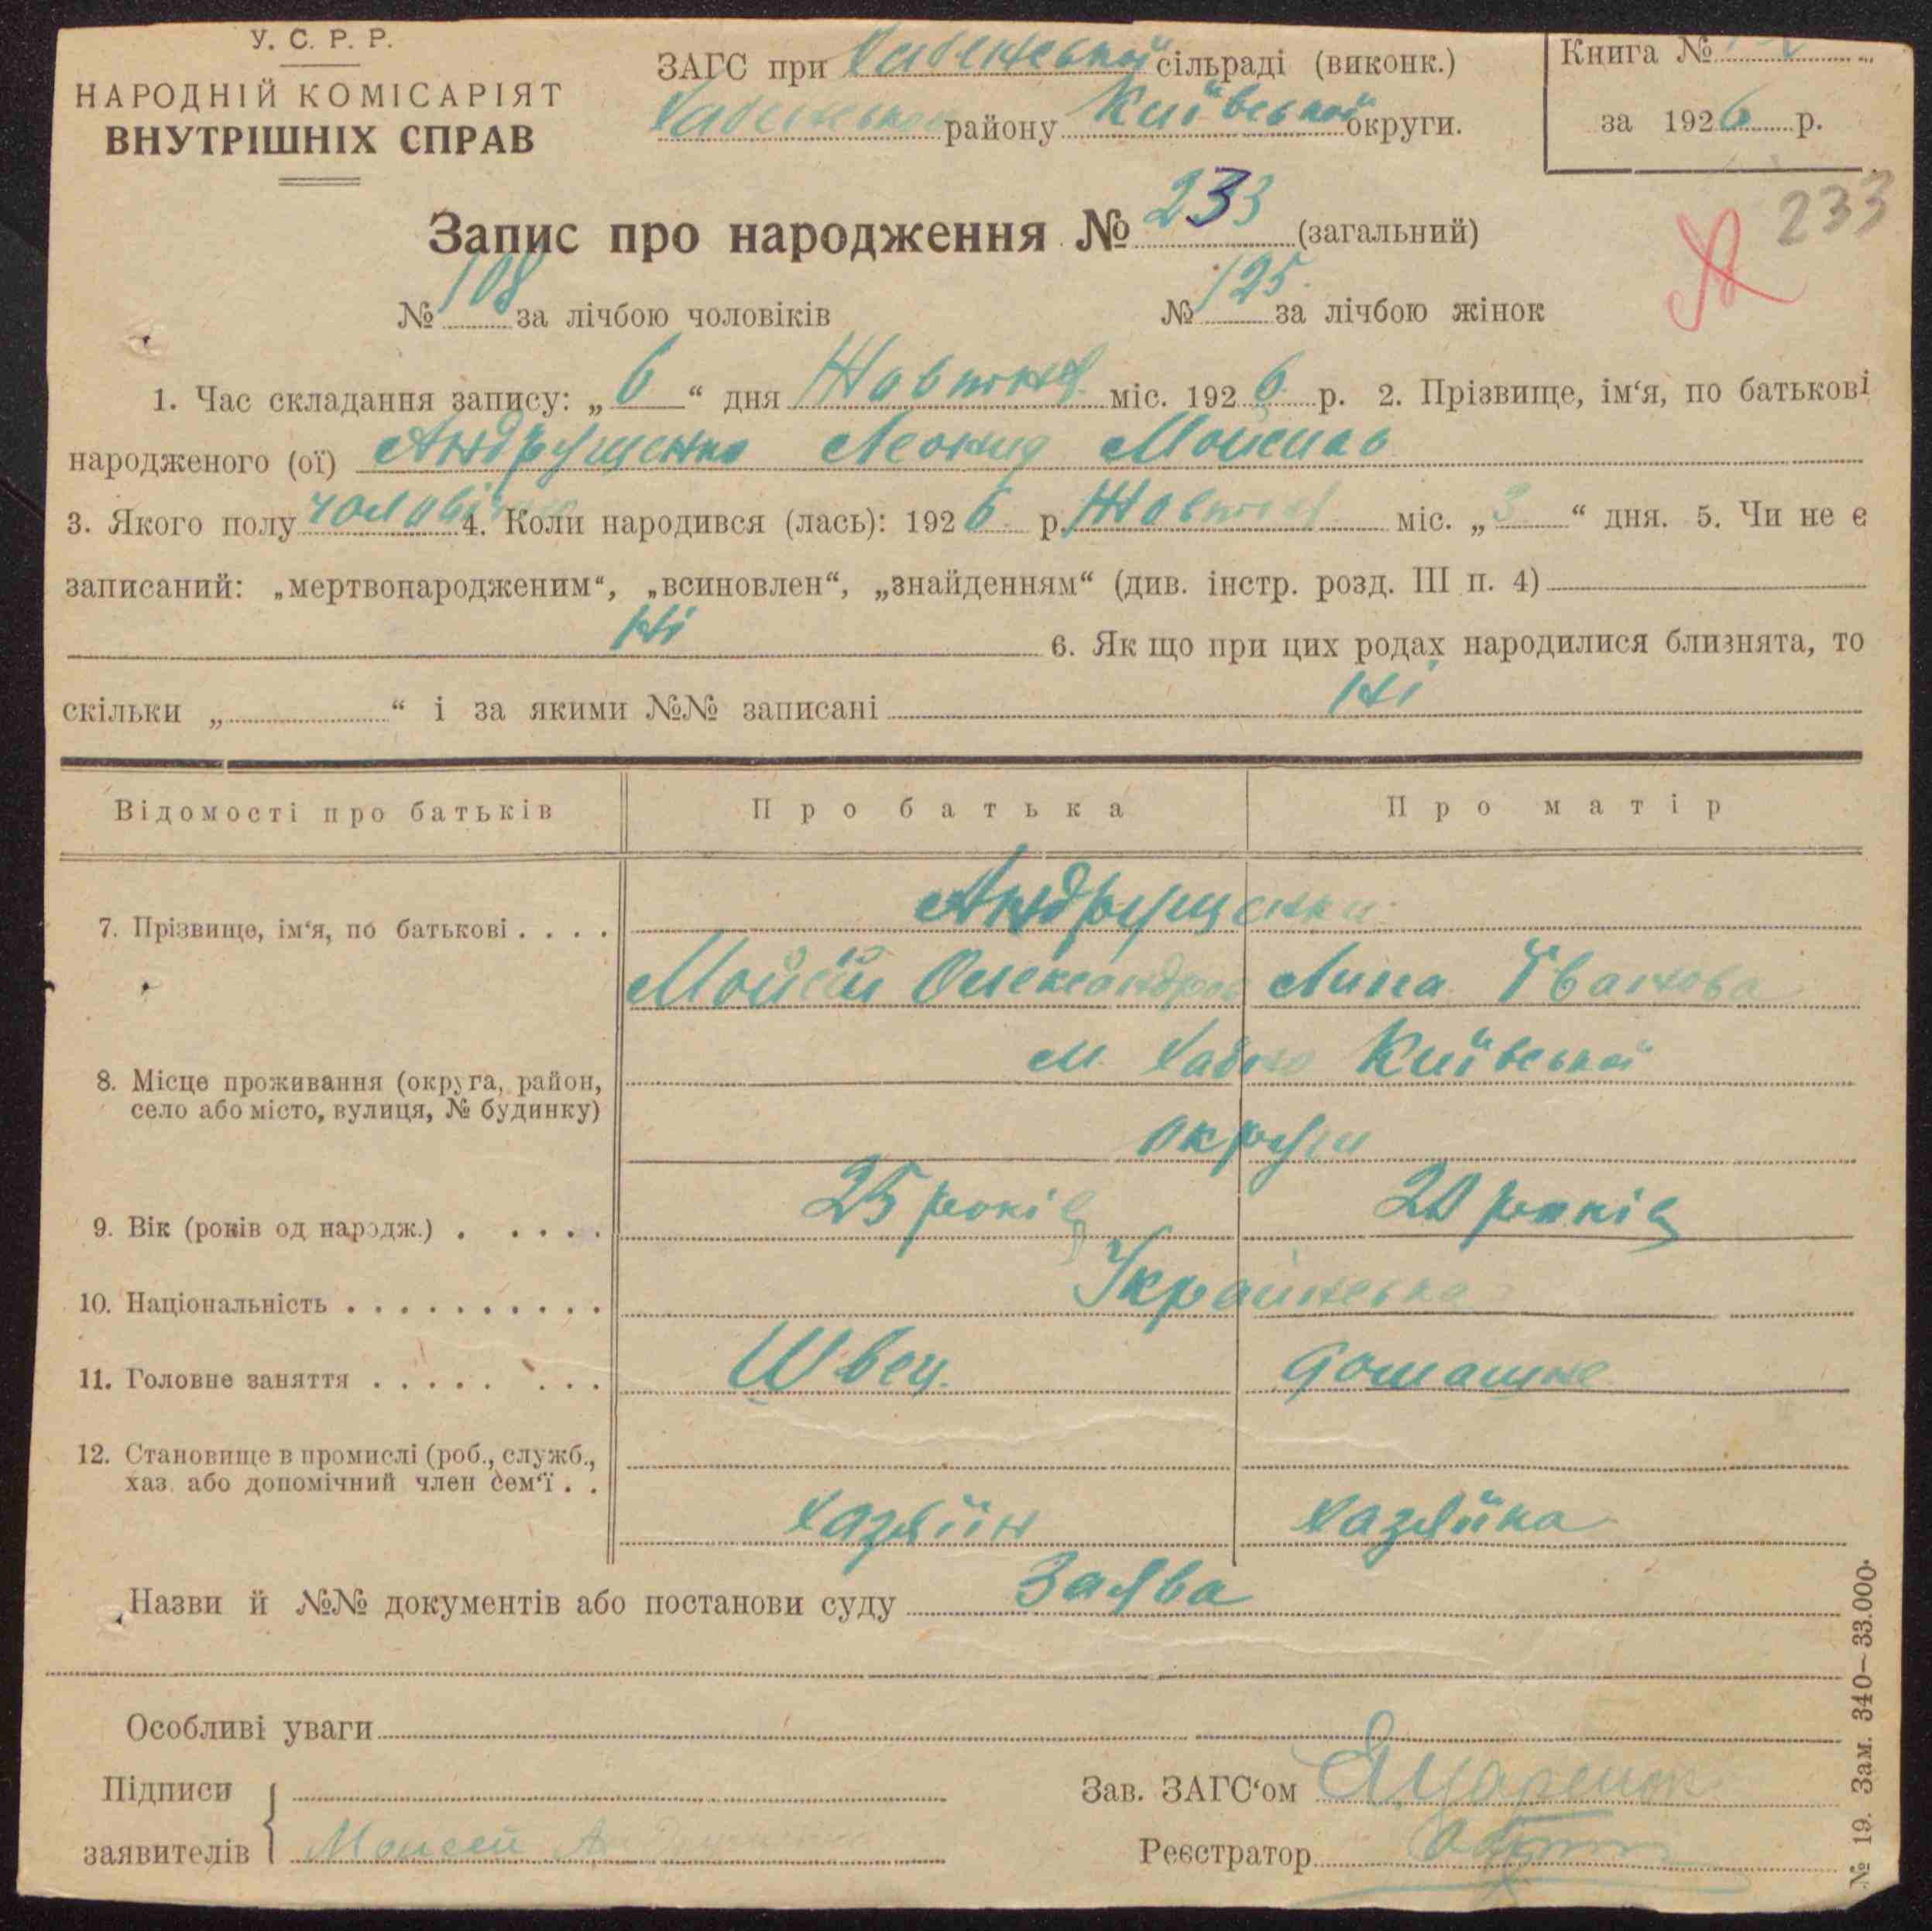 У. С. Р. Р.
НАРОДНІЙ КОМІСАРІЯТ
ВНУТРІШНІХ СПРАВ
ЗАГС при Хабенській сільраді (виконк.)
Хабенського району Київської округи.
Книга №
за 1926 р.
233
Запис про народження № 233 (загальний)
№ 108 за лічбою чоловіків № 125 за лічбою жінок
1. Час складання запису: „6“ дня Жовтня міс. 1926 р. 2. Прізвище, ім‘я, по батькові
народженого (ої) Андрущенко Леонид Мойсеів
3. Якого полу чоловічого 4. Коли народився (лась): 1926 р. Жовтня міс. „3“ дня. 5. Чи не є
записаний: „мертвонародженим“, „всиновлен“, „знайденням“ (див. інстр. розд. III п. 4)
Ні 6. Як що при цих родах народилися близнята, то
скільки „ “ і за якими №№ записані Ні
Відомості про батьків Про батька Про матір
7. Прізвище, ім‘я, по батькові . . . . Андрущенки
Мойсій Олександров Ліпа Іванова
8. Місце проживання (округа, район, м. Хабно Київської
село або місто, вулиця, № будинку) округи
9. Вік (років од народж.) . . . . . 25 років 20 років
10. Національність . . . . . . . . . . Українська
11. Головне заняття . . . . . . . . Швец. домашнє
12. Становище в промислі (роб., служб.,
хаз. або допомічний член сем‘ї . .
хазяїн хазяйка
Назви й №№ документів або постанови суду Заява
Особливі уваги
Підписи
заявителів Моисей
Зав. ЗАГС‘ом
Реєстратор
№ 19. Зам. 340—33.000.